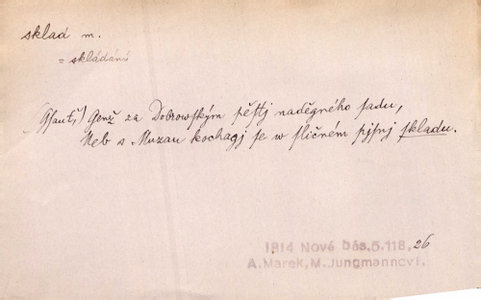 sklad m.
= skládání
(Gsauť,) Genž za Dobrowským pěstj naděgného sadu,
Neb s Muzau kochagj se w sličném pjsnj skladu.
1814 Nové bás.5.118, 26
A.Marek,M.Jungmannovi.